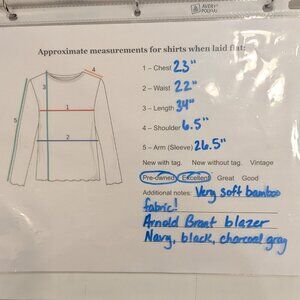 AVERY
Approximate measurements for shirts when laid flat:
1 – Chest 23"
2 – Waist 22"
3 – Length 34"
4 – Shoulder 6.5"
5 – Arm (Sleeve) 26.5"
New with tag. New without tag. Vintage
Pre-owned Excellent Great Good
Additional notes: Very soft bamboo
fabric!
Arnold Brant blazer
Navy, black, charcoal gray
3
4
1
2
5